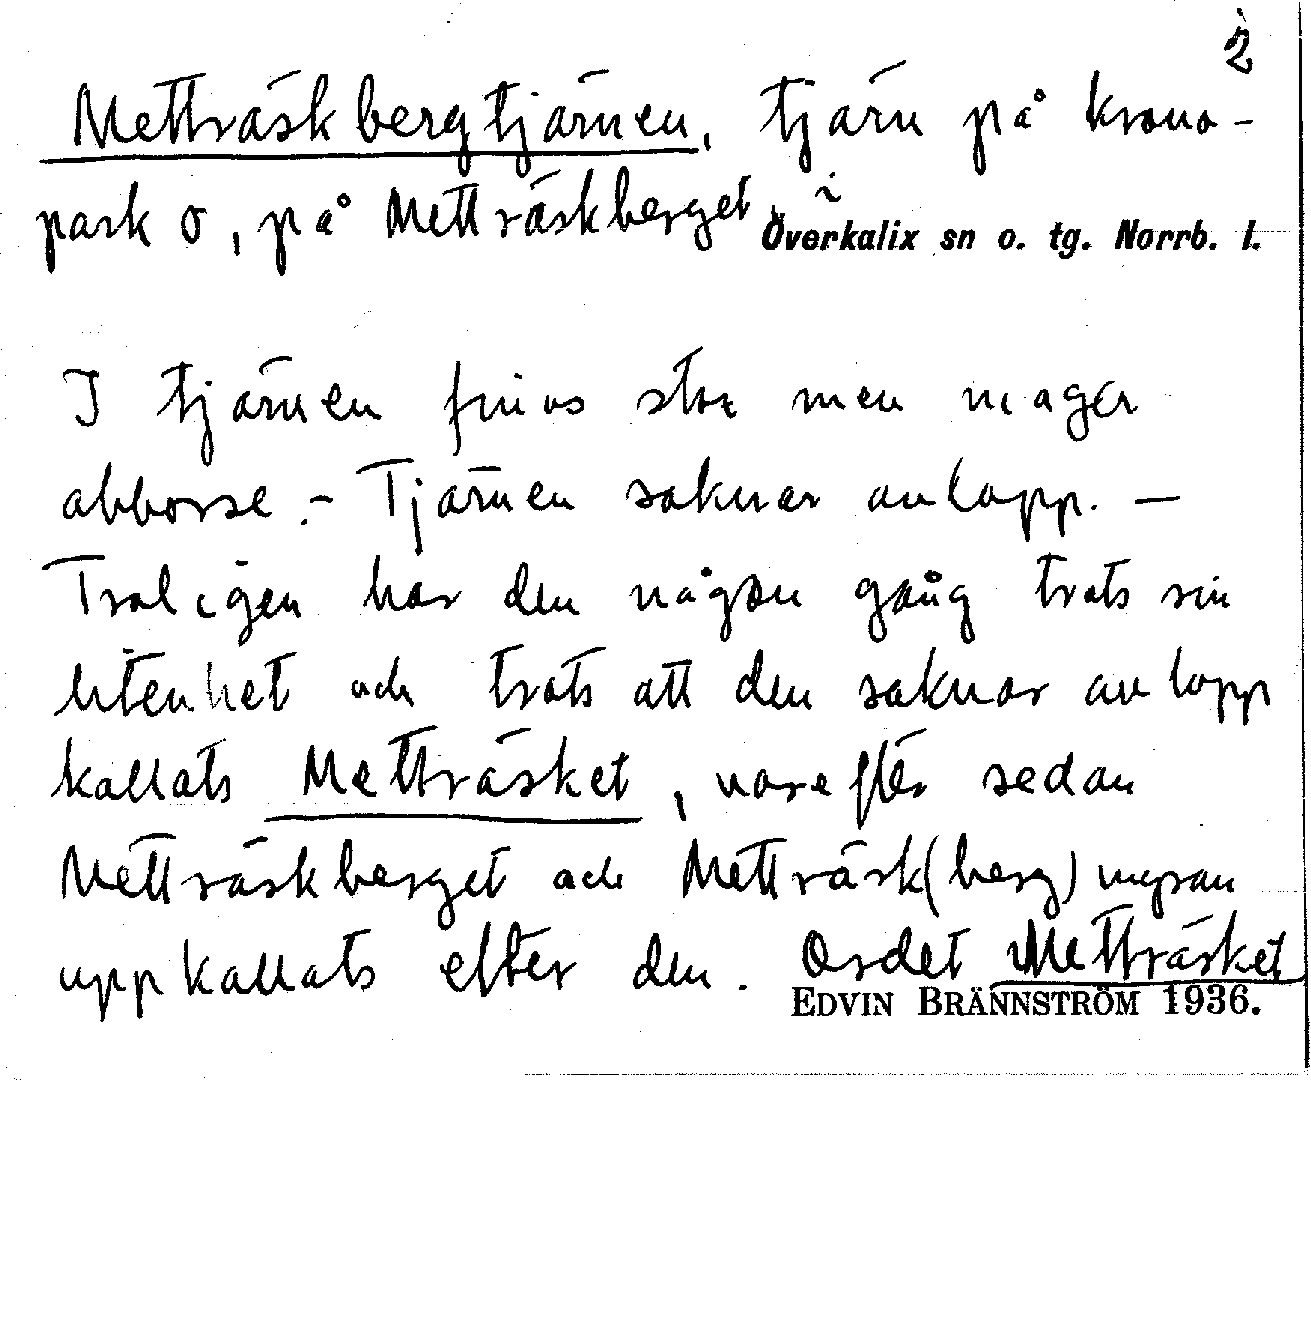 2
Metträskbergtjärnen, tjärn på krono-
park o, på Metträskberget i
Överkalix sn o. tg. Norrb. l.
I tjärnen finns stor men mager
abborre. - Tjärnen saknar avlopp. —
Troligen har den någon gång trots sin
litenhet och trots att den saknar avlopp
kallats Metträsket, varefter sedan
Metträskberget och Metträsk(berg)myran
uppkallats efter den. Ordet Metträsket
EDVIN BRÄNNSTRÖM 1936.